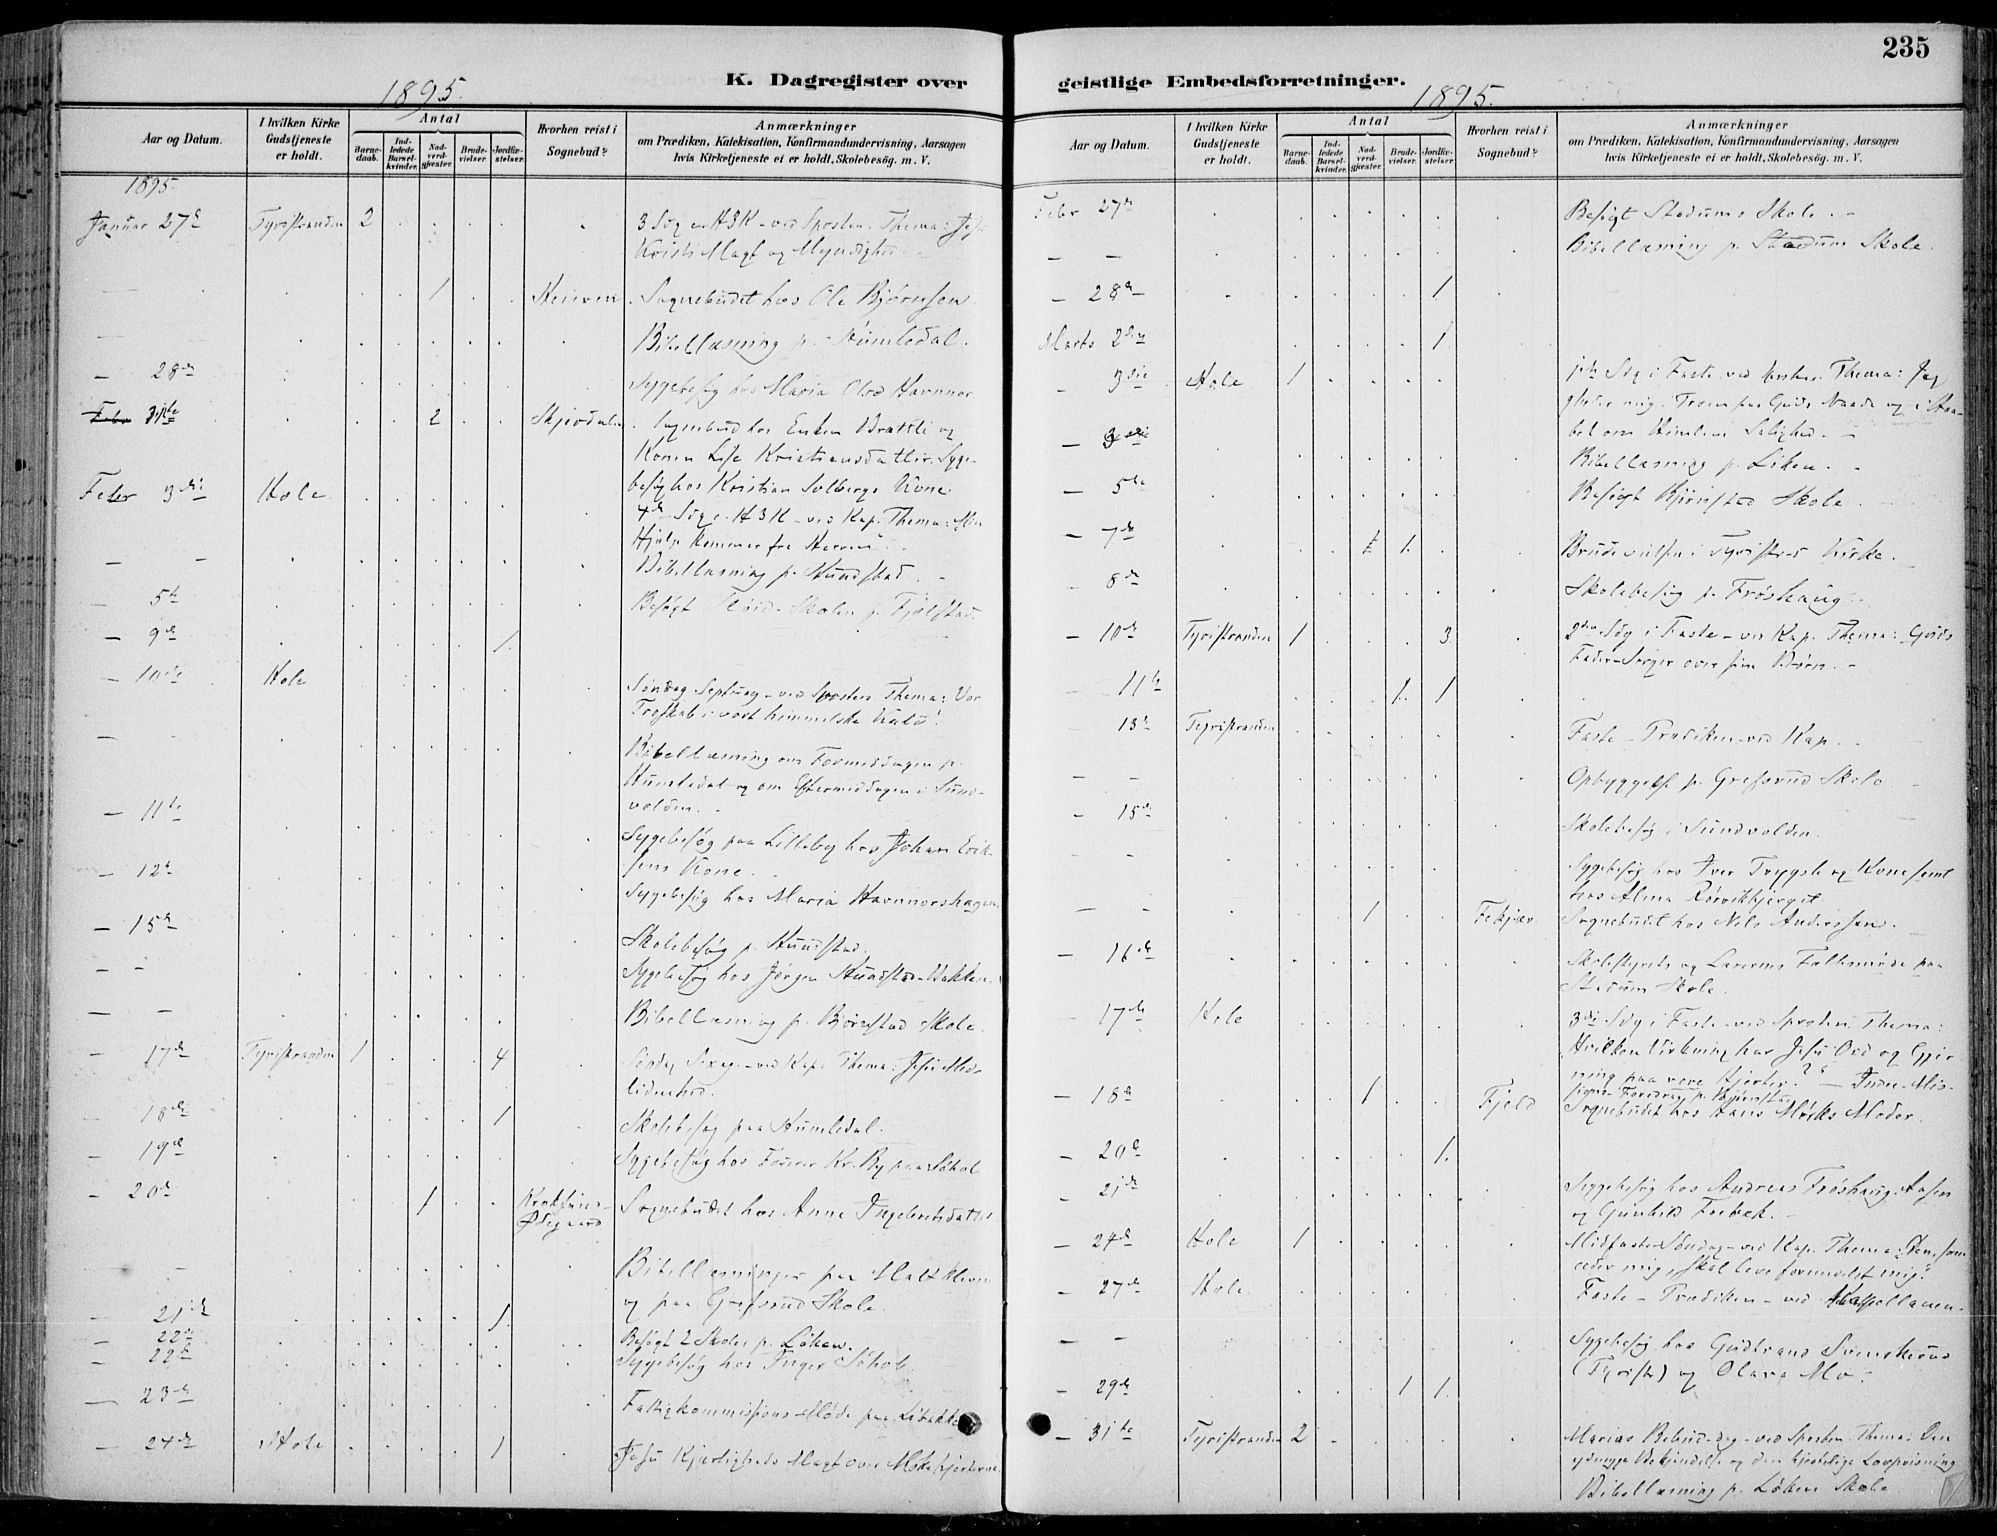 235
K. Dagregister over
geistlige Embedsforretninger.
1895.
1895.
Aar og Datum.
I hvilken Kirke
Gudstjeneste
er holdt.
Antal
Barne-
daab.
Ind-
ledede
Barsel-
kvinder.
Nad-
verd-
gjæster.
Brude-
vielser.
Jordfæ-
stelser.
Hvorhen reist i
Sognebud?
Anmærkninger
om Prædiken, Katekisation, Konfirmandundervisning, Aarsagen
hvis Kirketjeneste ei er holdt, Skolebesøg. m. V.
1895.
Januar 27de Tyristranden 2 3 Søg e. H3K - ved Sposten. Thema: Jesu
Kristi Magt og Myndighed
1 Sognebudet hos Ole Bjørnsen
Bibellæsning p. Humledal.
- 28de Sygebesøg hos Maria Olsd Havnnor
31te 2 Skjærdalen Sognebud hos Enken Brattli og
Konen Lise Kristiansdatter. Syge-
besøg hos Kristian Solbergs Kone.
Febr 3die Hole 4de Søg e. H3K - ved Kap. Thema: Min
Hjælp kommer fra Herren
- - Bibellæsning p. Hundstad.
- 5te Besøgt Sløid-Skolen p. Fjelstad.
- 9de 1
- 10de Hole Søndag Septuag - ved Sposten Thema: Vor
Troskab i vort himmelske Kald.
- Bibellæsning om Formiddagen p.
Humledal og om Eftermiddagen i Sund-
volden.
- 11te Sygebesøg paa Lilleby hos Johan Erik-
sens Kone.
- 12te Sygebesøg hos Maria Havnnorshagen.
- 15de Skolebesøg p. Hundstad.
- - Sygebesøg hos Jørgen Hundstad-Bakken.
- - Bibellæsning p. Bjørnstad Skole.
- 17de Tyristranden 1 4 Søndag Sexag. - ved Kap. Thema: Jesu Med-
lidenhed.
- 18de 1 Skolebesøg paa Humledal.
- 19de Sygebesøg hos Kr. By paa Søhol
- 20de 1 Ødegaard Sognebudet hos Anne Ingebretsdatter
Bibellæsninger paa
og paa Grefsrud Skole.
- 21de 1
- 22de Besøgt 2 Skoler p. Løken.
- 22de Sygebesøg hos Inger Søhol
- 23de Fattigkommissions-Møde paa Libakke
- 24de Hole 1 Jesu Kjærligheds Magt over
Aar og Datum.
I hvilken Kirke
Gudstjeneste
er holdt.
Antal
Barne-
daab.
Ind-
ledede
Barsel-
kvinder.
Nad-
verd-
gjæster.
Brude-
vielser.
Jordfæ-
stelser.
Hvorhen reist i
Sognebud?
Anmærkninger
om Prædiken, Katekisation, Konfirmandundervisning, Aarsagen
hvis Kirketjeneste ei er holdt, Skolebesøg. m. V.
Febr 27de Besøgt Stadums Skole. -
- - Bibellæsning p. Stadum Skole.
- 28de 1
Marts 2den 1
- 3die Hole 1 1ste Søg i Faste - ved Thema: Jeg
glæder mig i Troen paa Guds Naade og i Haa-
bet om Himlens Salighed. -
- 3die Bibellæsning p. Løken.
- 5te Besøgt Bjørnstad Skole
- 7de 1 Brudevielse i Tyristr-s Kirke.
- 8de Skolebesøg p. Frøshaug
- 10de Tyristranden 1 3 2den Søg i Faste - ved Kap. Thema: Guds
Fader-Sorger over sine Børn. -
- 11te 1 1
13de Tyristranden Faste-Prædiken - ved Kap.
- - Opbyggelse p. Grefsrud Skole
- 15de Skolebesøg i Sundvolden.
- - Sygebesøg hos Iver Trygsle og Kone samt
hos Alma Rørvikbjerget
- - 1 Fekjær. Sognebudet hos Nils Anderssen.
- 16de Skolestyrets og Lærernes Fællesmøde paa
Stadum Skole.
- 17de Hole 3die Søg i Faste - ved Sposten Thema:
Hvilken Virkning har Jesu Ord og Gjer-
ning paa vore Hjerter? - Indre-Mis-
sions-Foredrag p. Bjørnstad
- 18de 1 Fjeld Sognebudet hos Hans Mørks Moder.
- 20de 1
- 21de Sygebesøg hos Andreas Frøshaug-Aasen
og Gunhild
- 24de Hole 1 Midfaste-Søndag - ved Kap. Thema: Den, som
æder mig, skal leve formedelst mig.
- 27de Hole Faste-Prædiken - ved Kapellanen.
- - Sygebesøg hos Gudbrand Svenskerud
(Tyristr) og Olava Mo.
- 29de 1 1
- 31te Tyristranden 2 Mariæ Bebud-dag - ved Sposten. Thema: Den
ydmyge Bekjendelse og den hjertelige Lovprisning
Bibellæsning p. Løken Skole.